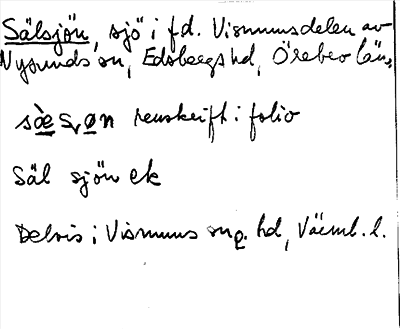 Sälsjön, sjö i fd. Vismensdelen av
Nysunds sn, Edsbergs hd, Örebro län,
renskrift i folio
Säl sjön ek
Delvis i Visnums sn o. hd, Värml. l.